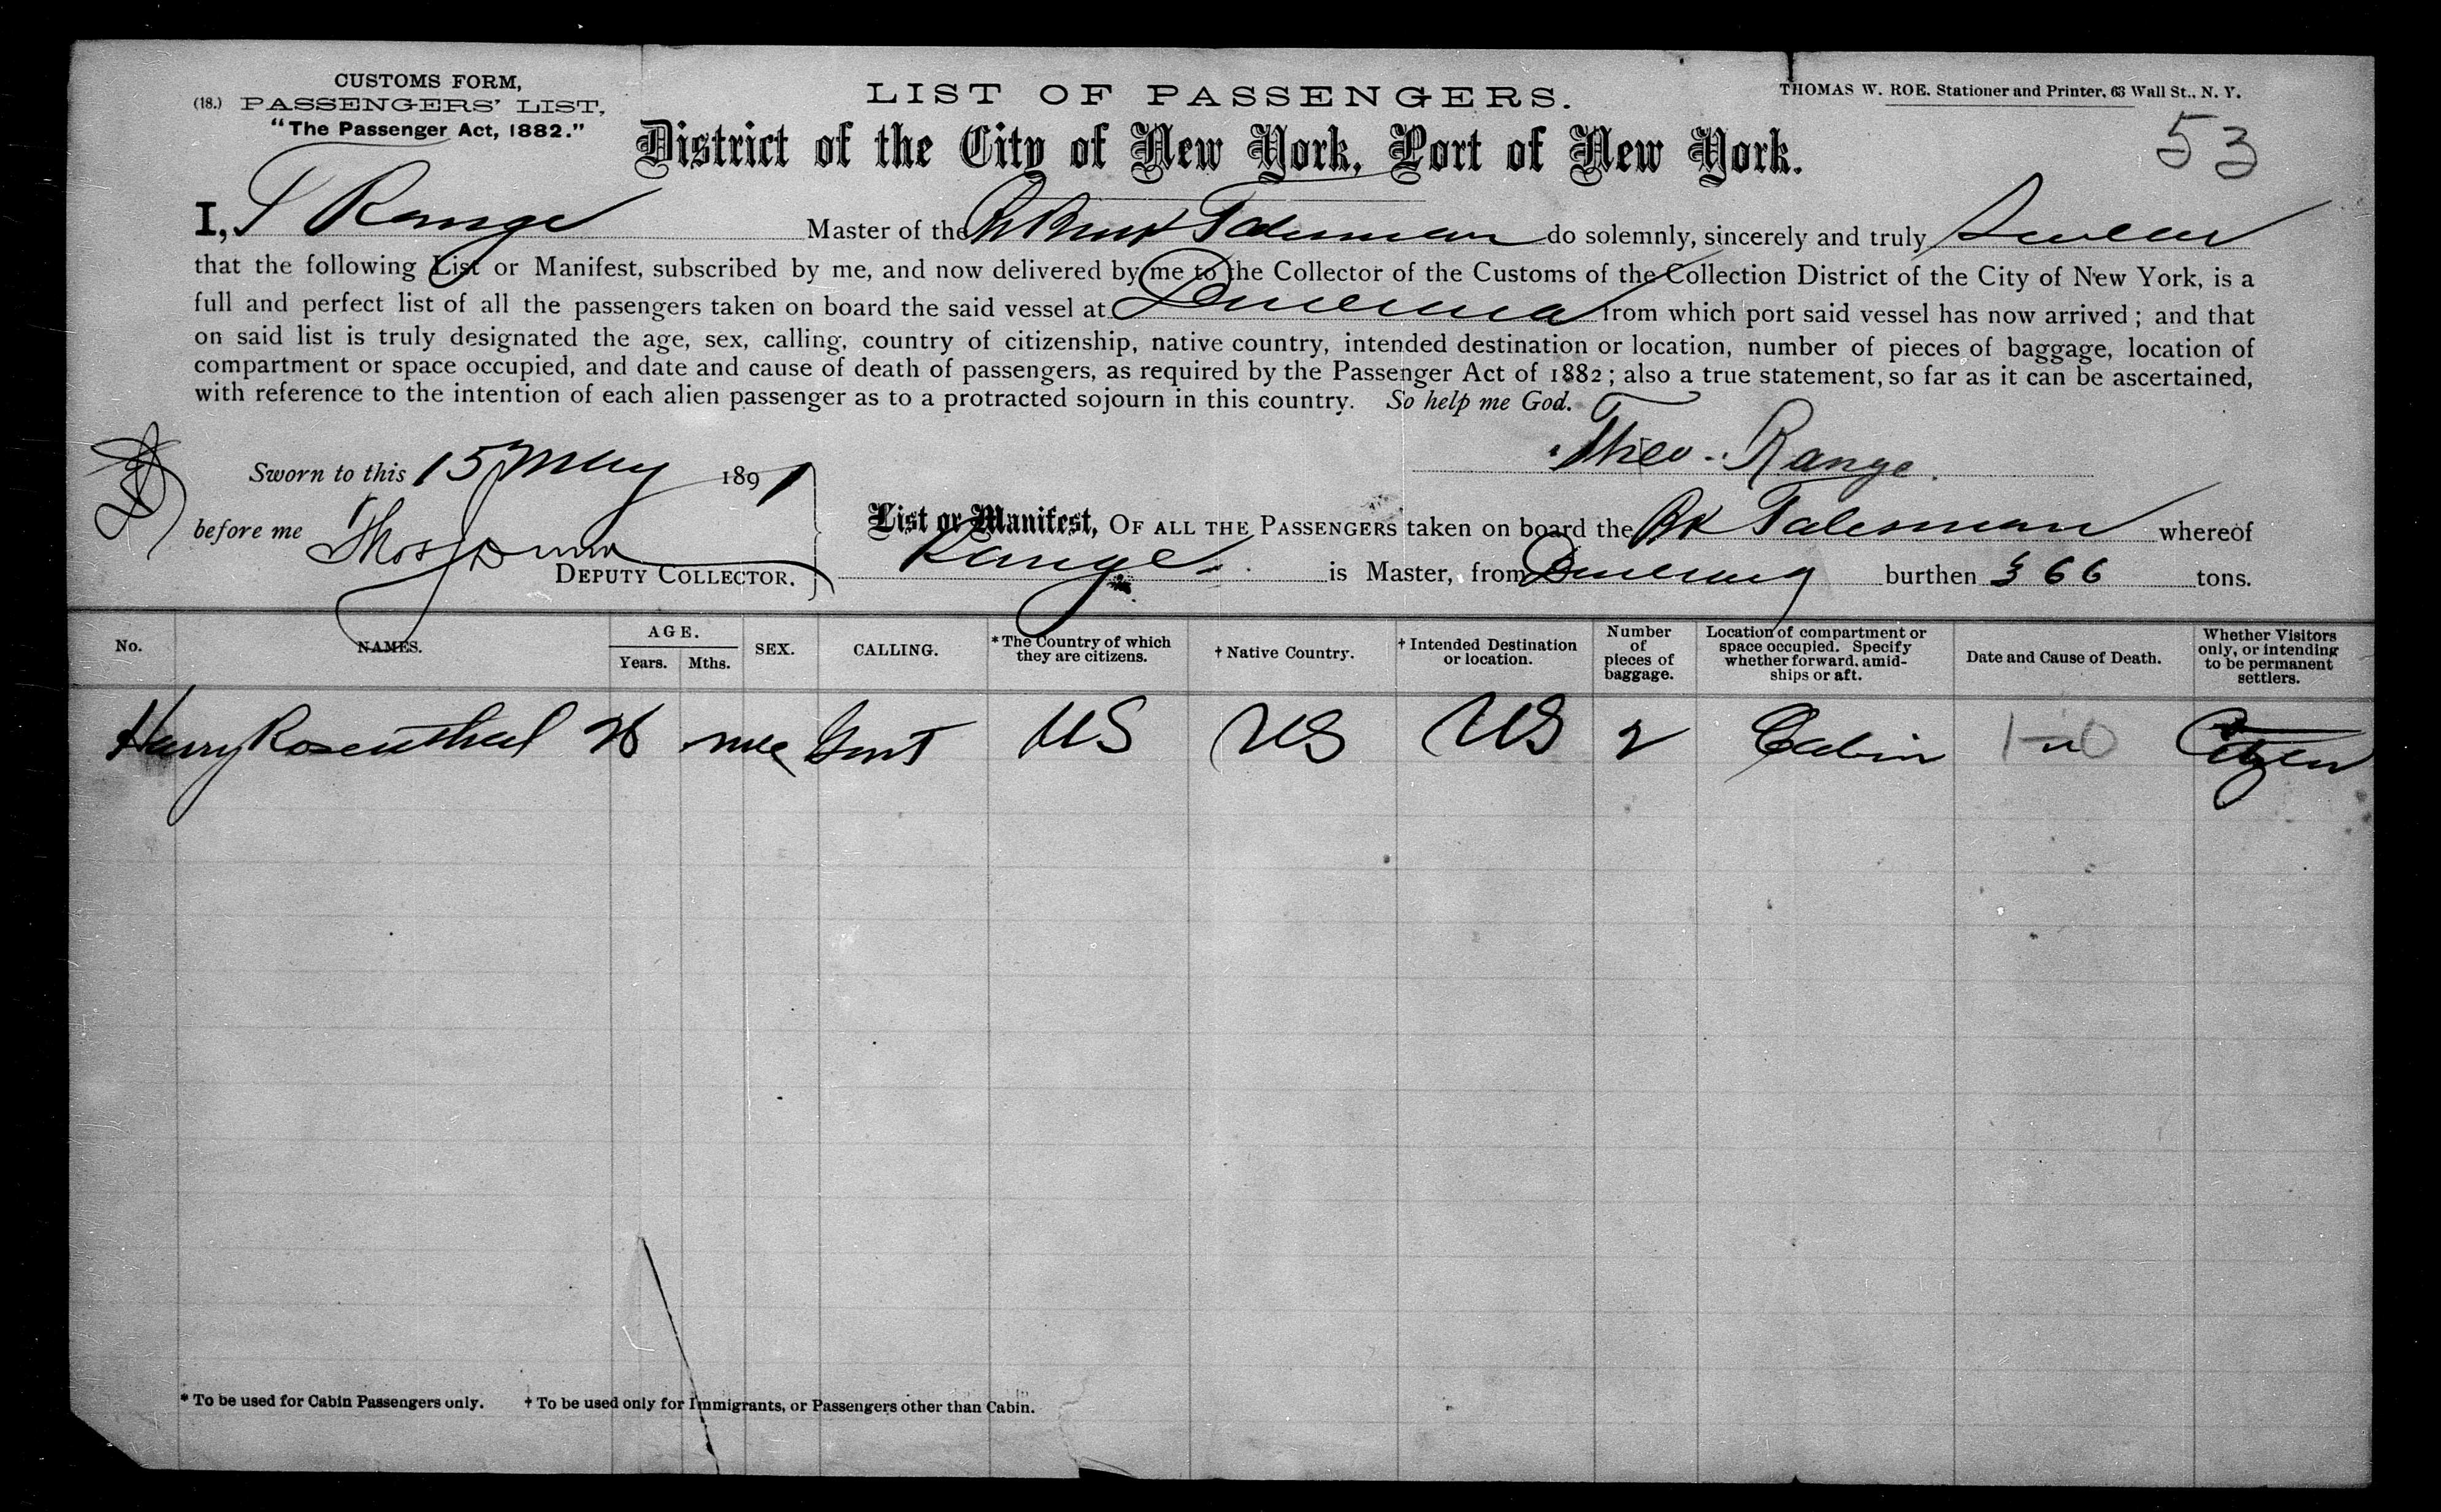 CUSTOMS FORM,
(18.) PASSENGERS' LIST,
"The Passenger Act, 1882."
LIST OF PASSENGERS.
THOMAS W. ROE. Stationer and Printer, 63 Wall St., N. Y.
District of the City of New York, Port of New York.
53
I, T Range Master of the Talisman do solemnly, sincerely and truly Swear
that the following List or Manifest, subscribed by me, and now delivered by me to the Collector of the Customs of the Collection District of the City of New York, is a
full and perfect list of all the passengers taken on board the said vessel at Demerara from which port said vessel has now arrived; and that
on said list is truly designated the age, sex, calling, country of citizenship, native country, intended destination or location, number of pieces of baggage, location of
compartment or space occupied, and date and cause of death of passengers, as required by the Passenger Act of 1882; also a true statement, so far as it can be ascertained,
with reference to the intention of each alien passenger as to a protracted sojourn in this country. So help me God.
Theo. Range
Sworn to this 15 May 1891
before me Thos
DEPUTY COLLECTOR.
List or Manifest, OF ALL THE PASSENGERS taken on board the Bk Talisman whereof
Range is Master, from Demerara burthen 566 tons.
No. NAMES. AGE. Years. Mths. SEX. CALLING. *The Country of which they are citizens. † Native Country. † Intended Destination or location. Number of pieces of baggage. Location of compartment or space occupied. Specify whether forward, amidships or aft. Date and Cause of Death. Whether Visitors only, or intending to be permanent settlers.
Harry Rosenthal 26 male Gent US US US 2 Cabin Citizen
* To be used for Cabin Passengers only. † To be used only for Immigrants, or Passengers other than Cabin.